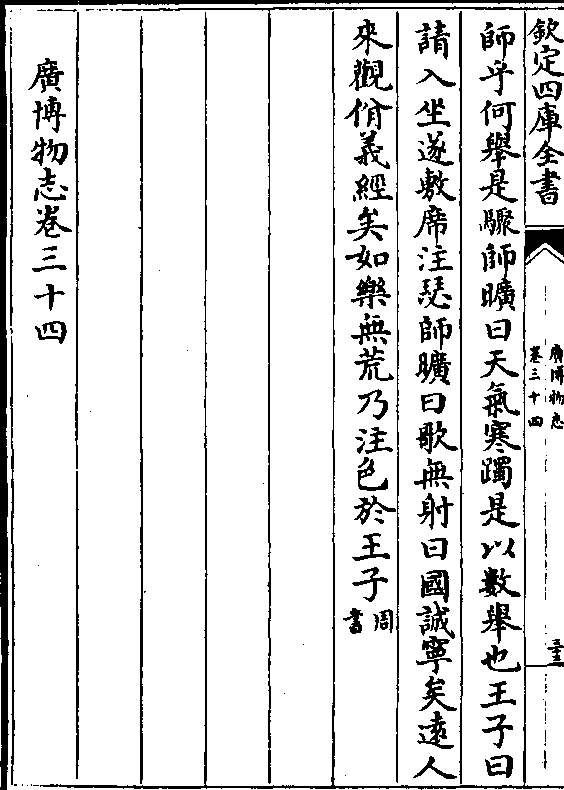 欽定四庫全書
廣博物志
卷三十四
三十三
師乎何舉是驟師曠曰天氣寒躅是以數舉也王子曰
請入坐遂敷席注瑟師曠曰歌無射曰國誠寧矣逺人
來觀脩義經矣如樂無荒乃注色於王子周書
廣博物志卷三十四